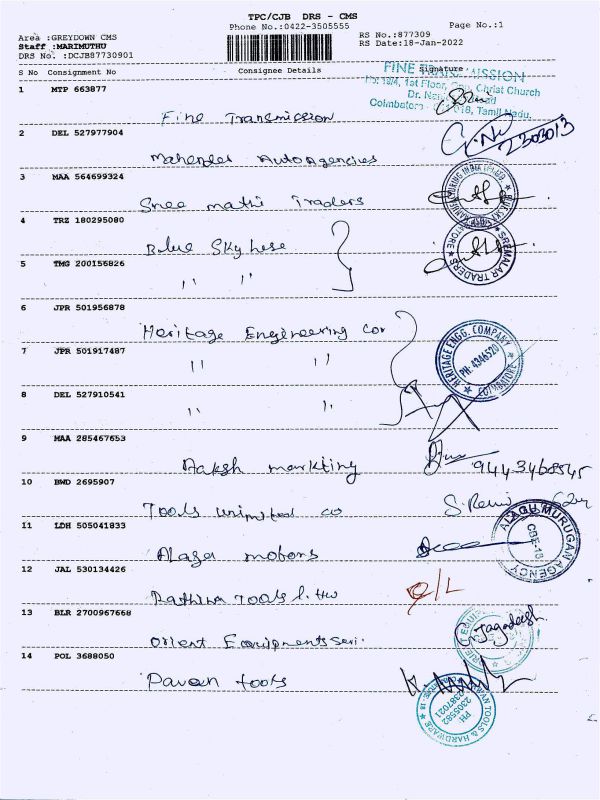 TPC/CJB DRS - CMS
Phone No.:0422-3505555
Page No.:1
Area :GREYDOWN CMS
Staff :MARIMUTHU
DRS No. :DCJB87730901
RS No.:877309
RS Date:18-Jan-2022
S No Consignment No Consignee Details Signature
1 MTP 663877
FINE TRANSMISSION
1st Floor, Christ Church
Coimbatore 018, Tamil Nadu.
Fine Transmission
2 DEL 527977904
2303013
Mahendra Auto Agencies
3 MAA 564699324
Sree mathi Traders
4 TRZ 180295080
Blue Sky hose
SREMALAR TRADERS
5 TMG 200156826
" "
6 JPR 501956878
Heritage Engineering Cor
HERITAGE ENGG. COMPANY
PH: 4346520
COIMBATORE
7 JPR 501917487
" "
8 DEL 527910541
" "
9 MAA 285467653
Aaksh markting
9443468545
10 BWD 2695907
Tools unimited co
11 LDH 505041833
ALAGU MURUGAN AGENCY
CBE-18
Alaga motors
12 JAL 530134426
O/L
Rathina Tools
13 BLR 2700967668
G. Jagadesh.
Orient Equipments Seri.
14 POL 3688050
Pavan tools
PAWAN TOOLS & HARDWARE
PH:
2305582
2387021